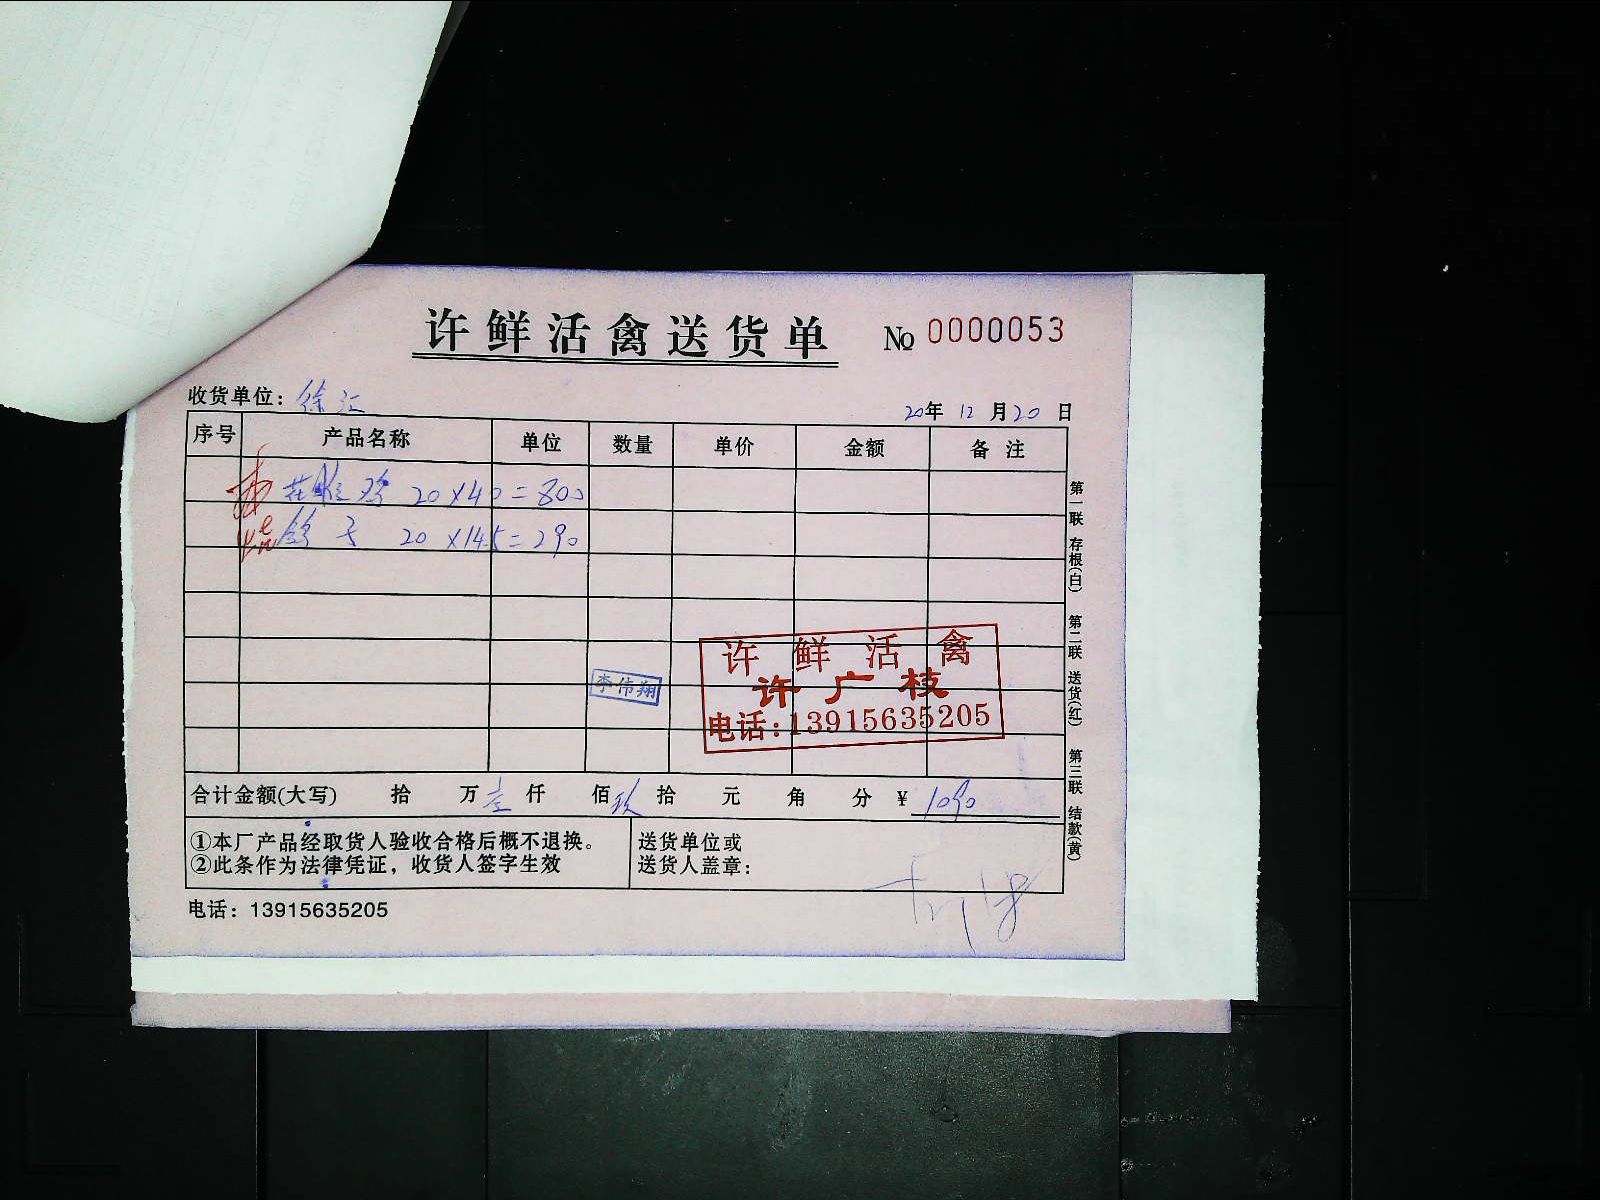 许鲜活禽送货单 № 0000053
收货单位：徐汇 20年 12月20日
序号 产品名称 单位 数量 单价 金额 备注
花雕鸡 20×40=800
鸽子 20×14.5=290
许鲜活禽
许广枝
电话:13915635205
李伟翔
合计金额(大写) 拾 万壹仟 佰玖拾 元 角 分 ¥ 1090
①本厂产品经取货人验收合格后概不退换。
②此条作为法律凭证，收货人签字生效
送货单位或
送货人盖章：
电话：13915635205
第一联 存根(白) 第二联 送货(红) 第三联 结款(黄)